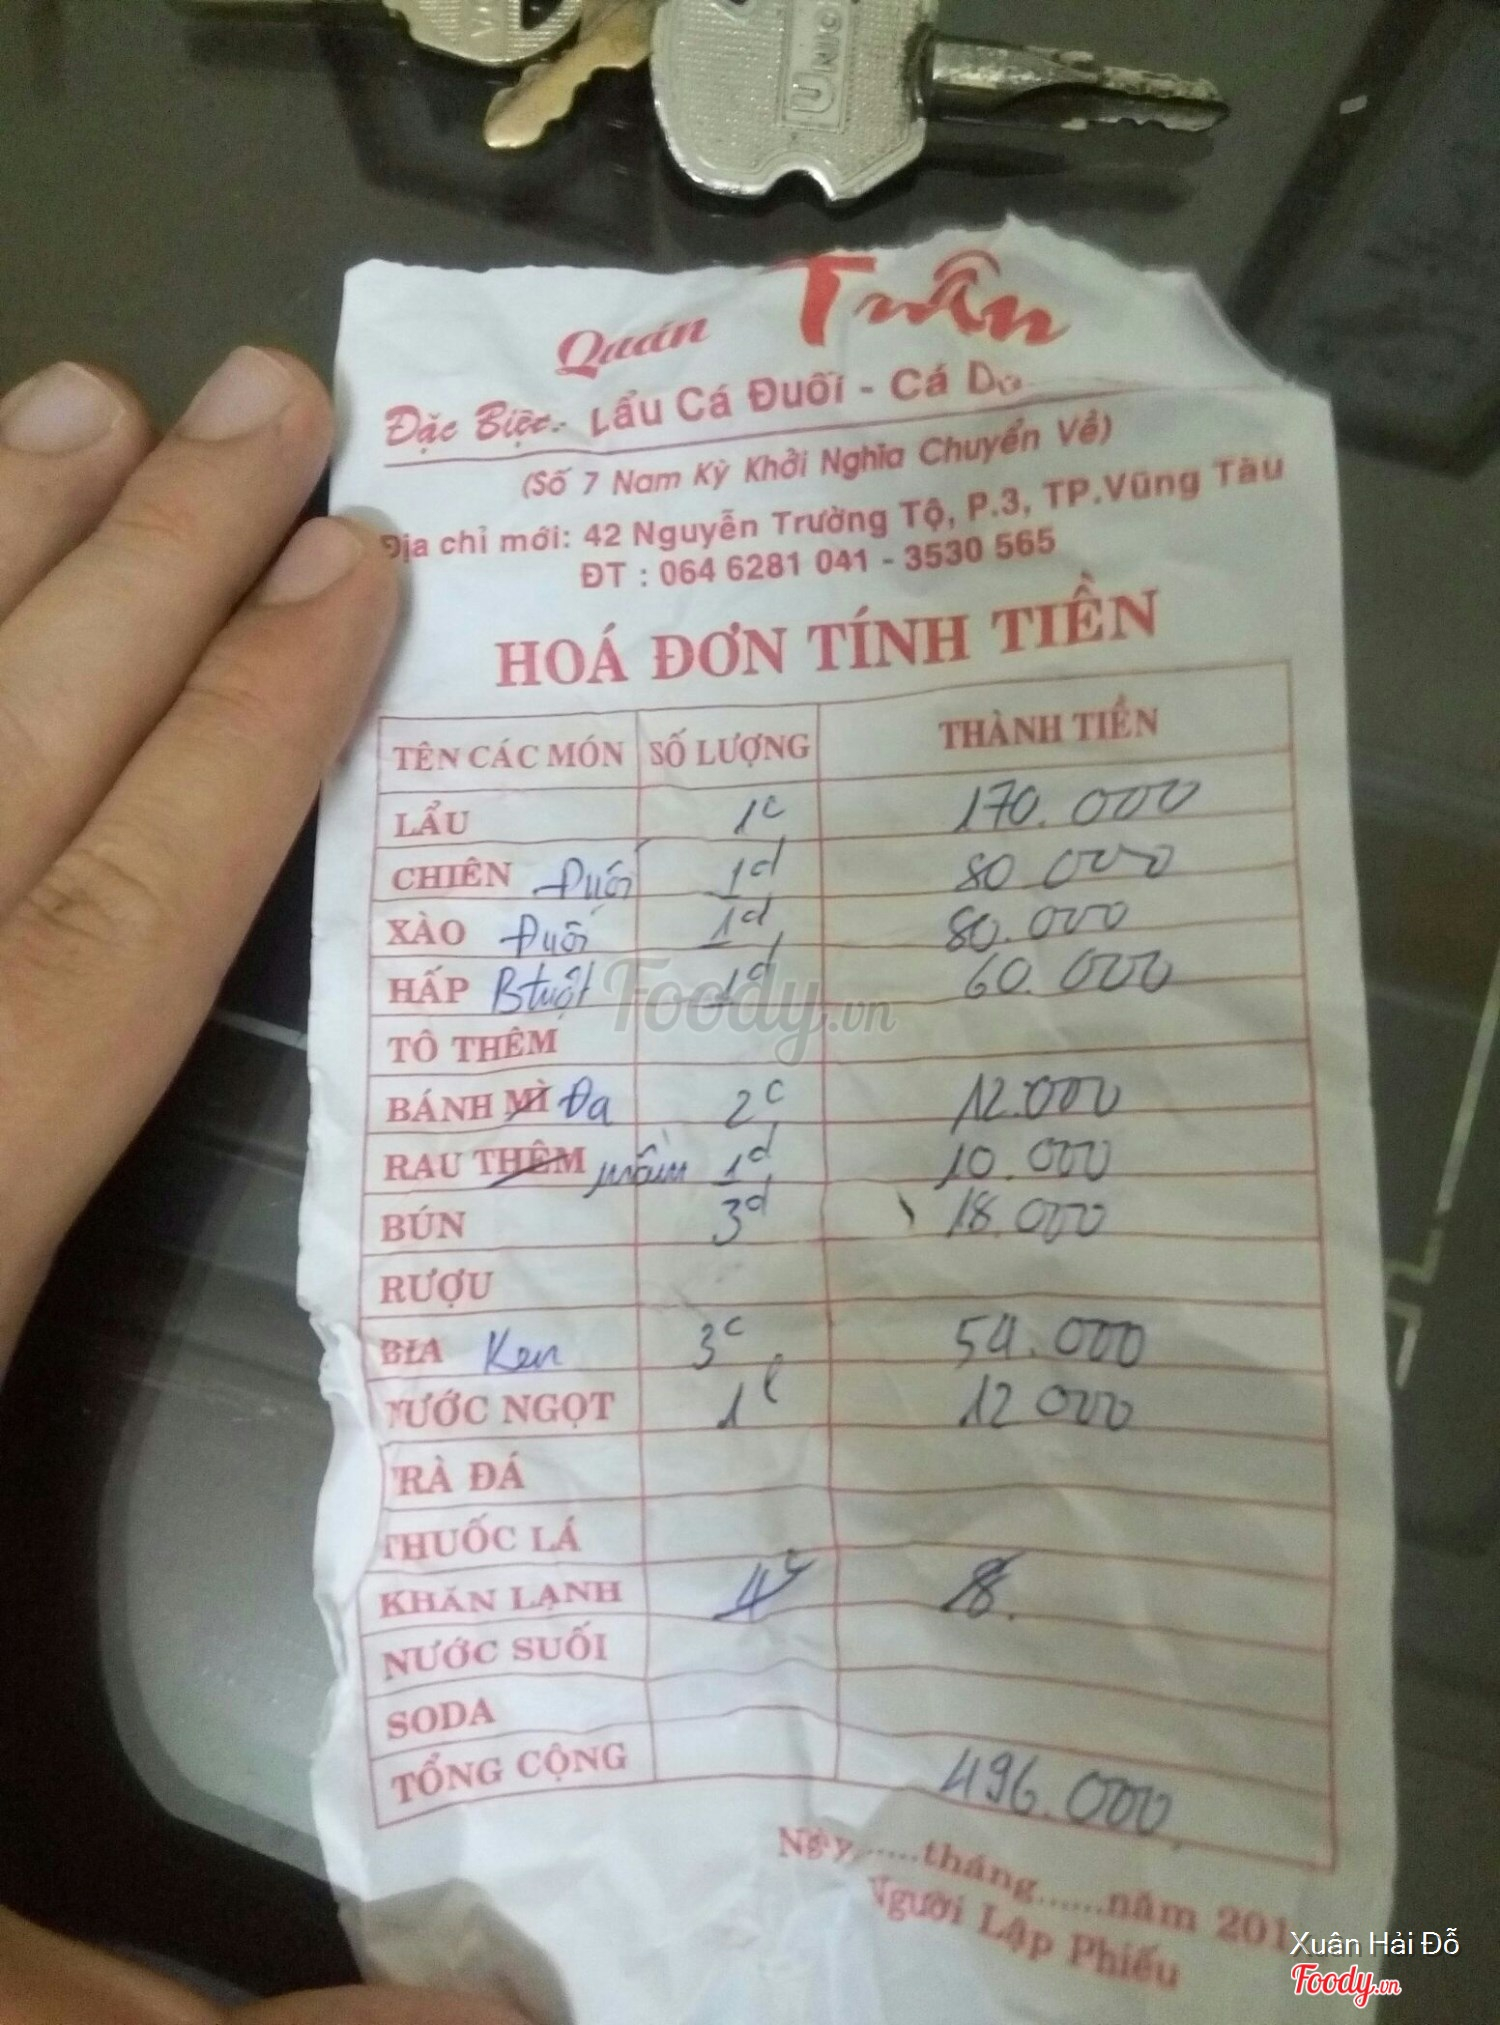 UNIC
Quán Tuân
Đặc Biệt:- Lẩu Cá Đuối - Cá
(Số 7 Nam Kỳ Khởi Nghĩa Chuyển Về)
Địa chỉ mới: 42 Nguyễn Trường Tộ, P.3, TP.Vũng Tàu
ĐT : 064 6281 041 - 3530 565
HOÁ ĐƠN TÍNH TIỀN
TÊN CÁC MÓN SỐ LƯỢNG THÀNH TIỀN
LẨU 1c 170.000
CHIÊN Đuối 1d 80 000
XÀO Đuối 1d 80.000
HẤP Btuột 1d 60.000
TÔ THÊM
BÁNH MÌ Đa 2c 12.000
RAU THÊM mầm 1d 10.000
BÚN 3d 18.000
RƯỢU
BIA Ken 3c 54.000
NƯỚC NGỌT 1l 12 000
TRÀ ĐÁ
THUỐC LÁ
KHĂN LẠNH 4c 8.
NƯỚC SUỐI
SODA
TỔNG CỘNG 496.000
Ngày......tháng......năm 201
Người Lập Phiếu
Foody.vn
Xuân Hải Đỗ
Foody.vn